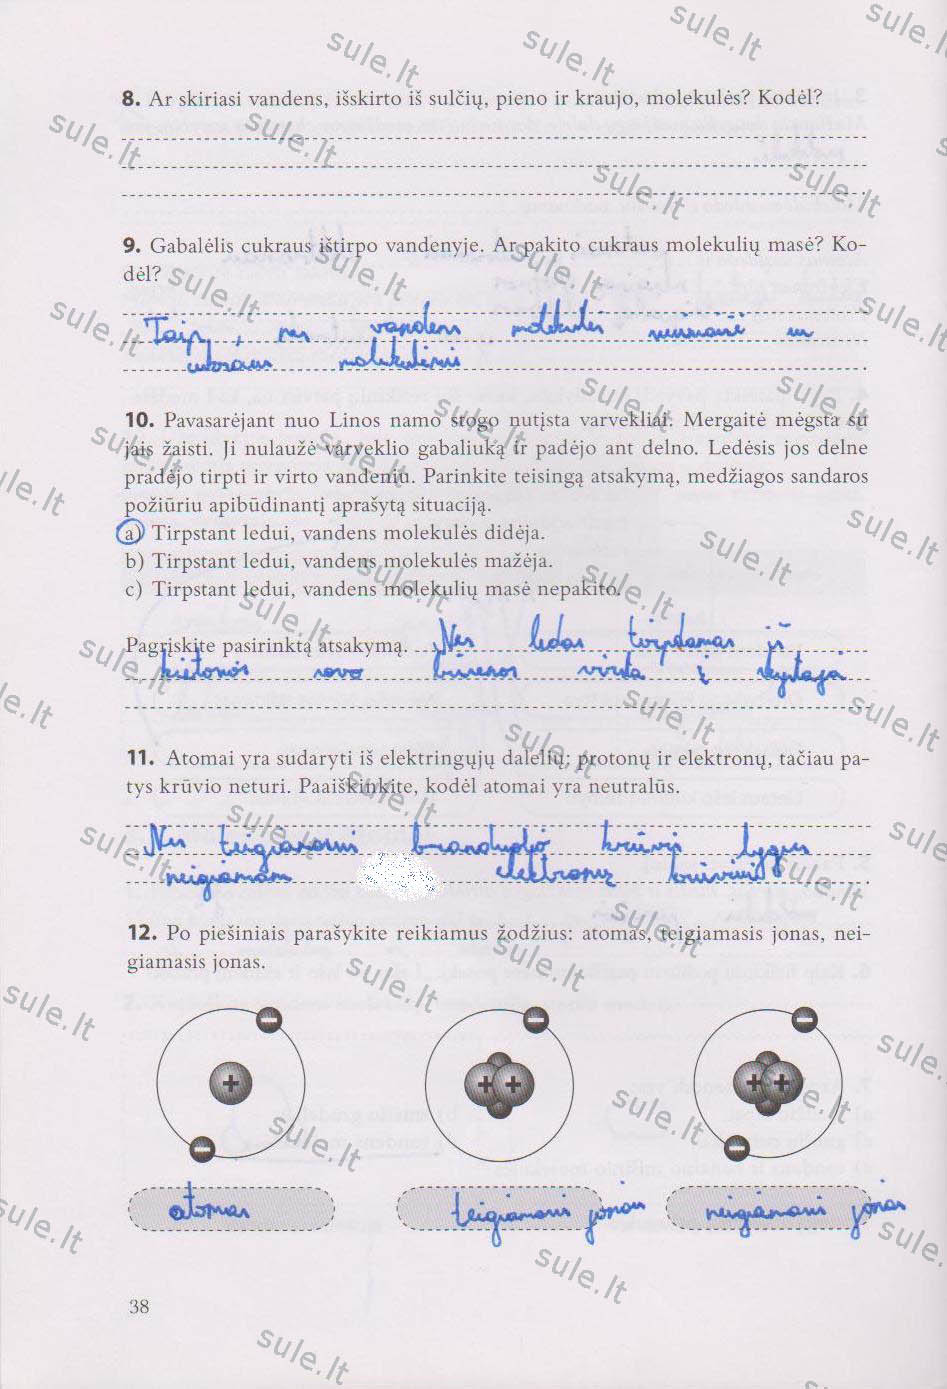 8. Ar skiriasi vandens, išskirto iš sulčių, pieno ir kraujo, molekulės? Kodėl?
9. Gabalėlis cukraus ištirpo vandenyje. Ar pakito cukraus molekulių masė? Ko-
dėl?
Taip, nes vandens molekulės susimaišė su
cukraus molekulėmis
10. Pavasarėjant nuo Linos namo stogo nutįsta varvekliai. Mergaitė mėgsta su
jais žaisti. Ji nulaužė varveklio gabaliuką ir padėjo ant delno. Ledėsis jos delne
pradėjo tirpti ir virto vandeniu. Parinkite teisingą atsakymą, medžiagos sandaros
požiūriu apibūdinantį aprašytą situaciją.
a) Tirpstant ledui, vandens molekulės didėja.
b) Tirpstant ledui, vandens molekulės mažėja.
c) Tirpstant ledui, vandens molekulių masė nepakito.
Pagrįskite pasirinktą atsakymą. Nes ledas tirpdamas iš
kietosios savo būsenos virsta į skystąją
11. Atomai yra sudaryti iš elektringųjų dalelių: protonų ir elektronų, tačiau pa-
tys krūvio neturi. Paaiškinkite, kodėl atomai yra neutralūs.
Nes teigiamasis branduolio krūvis lygus
neigiamam elektronų krūviui
12. Po piešiniais parašykite reikiamus žodžius: atomas, teigiamasis jonas, nei-
giamasis jonas.
− − −
+ + + + +
− −
atomas teigiamasis jonas neigiamasis jonas
38
sule.lt